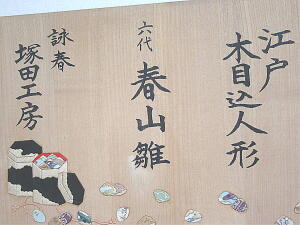 江戸
木目込人形
六代
春山雛
詠春
塚田工房